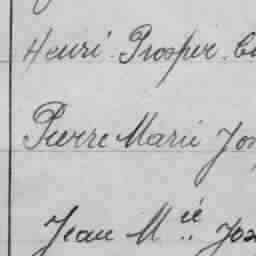 Henri Prosper
Pierre Marie Jos
Jean M.ie Jos